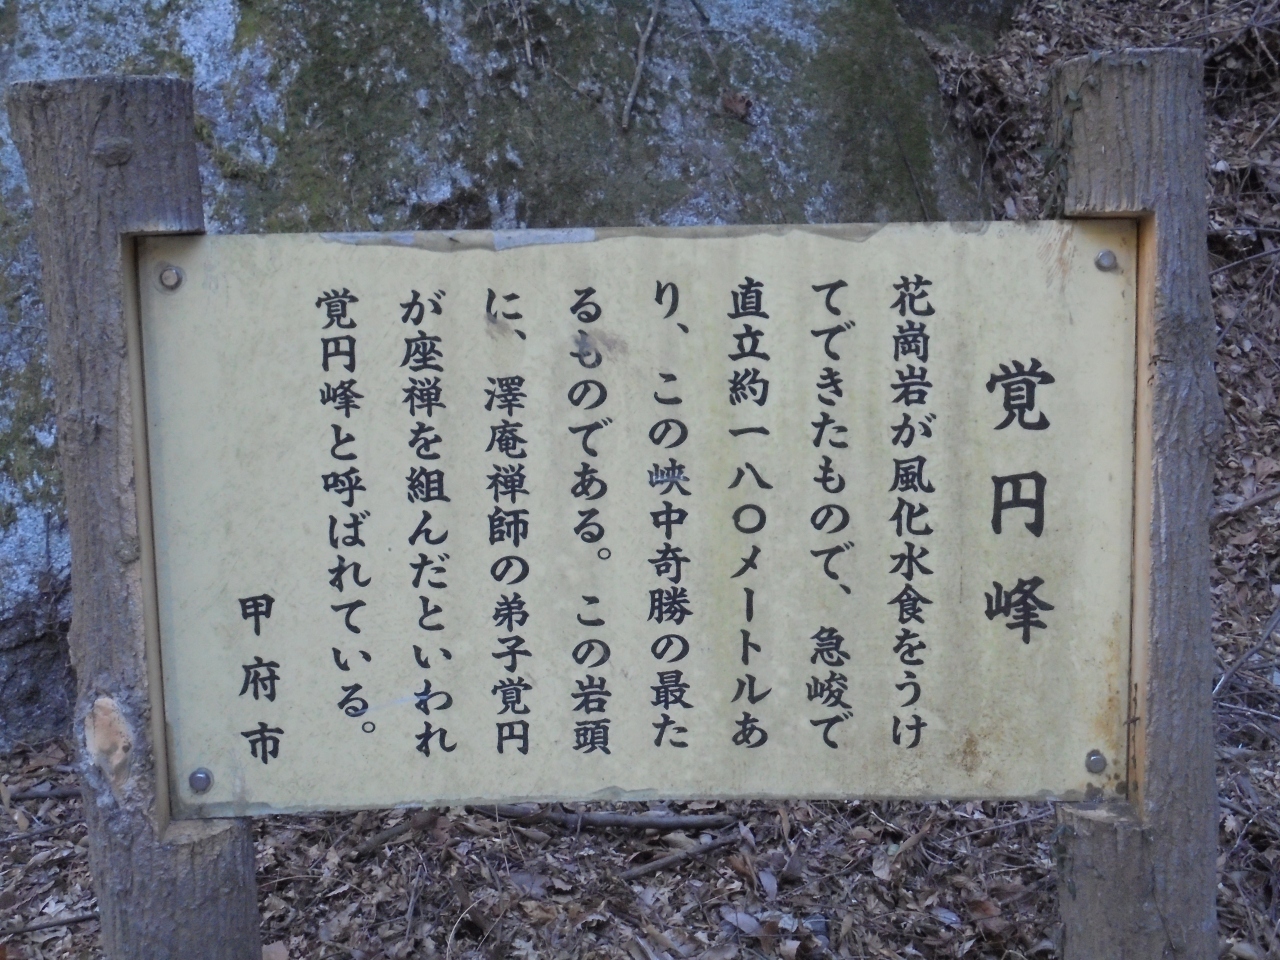 覚円峰
花崗岩が風化水食をうけ
てできたもので、急峻で
直立約一八〇メートルあ
り、この峡中奇勝の最た
るものである。この岩頭
に、澤庵禅師の弟子覚円
が座禅を組んだといわれ
覚円峰と呼ばれている。
甲府市